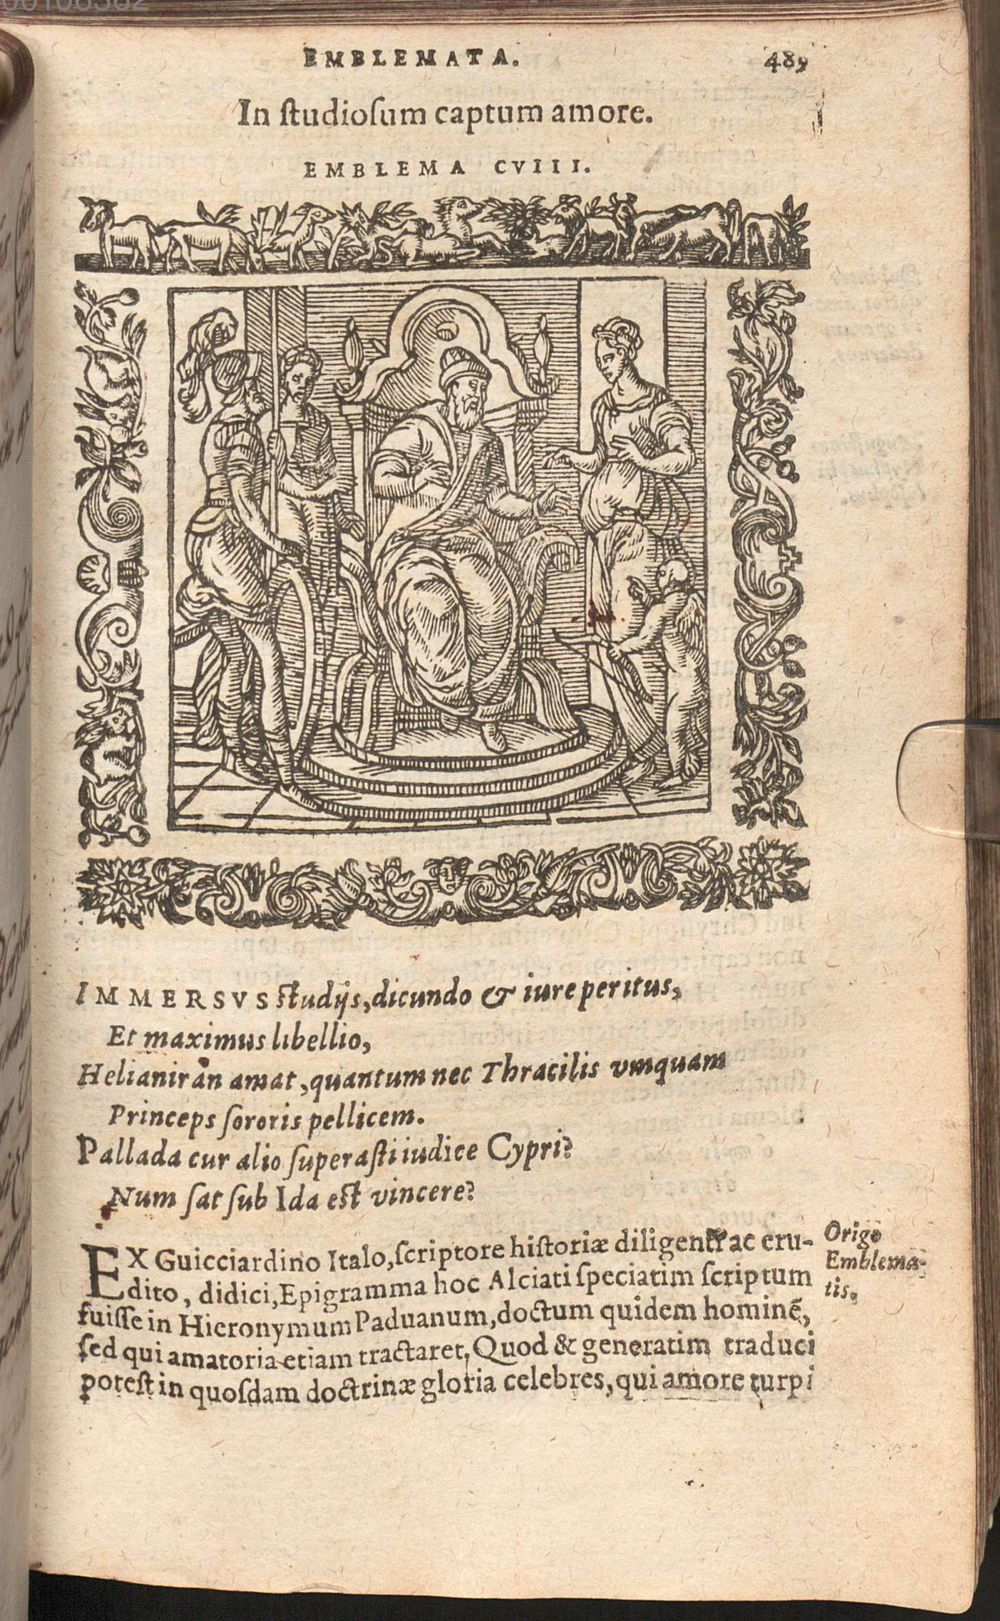 00106362
EMBLEMATA. 489
In studiosum captum amore.
EMBLEMA CVIII.
IMMERSVS studijs, dicundo & iure peritus,
Et maximus libellio,
Helianiran amat, quantum nec Thracilis vmquam
Princeps sororis pellicem.
Pallada cur alio superasti iudice Cypri?
Num sat sub Ida est vincere?
EX Guicciardino Italo, scriptore historiæ diligenti ac eru-
dito, didici, Epigramma hoc Alciati speciatim scriptum
fuisse in Hieronymum Paduanum, doctum quidem hominẽ,
sed qui amatoria etiam tractaret, Quod & generatim traduci
potest in quosdam doctrinæ gloria celebres, qui amore turpi
Origo
Emblema-
tis.